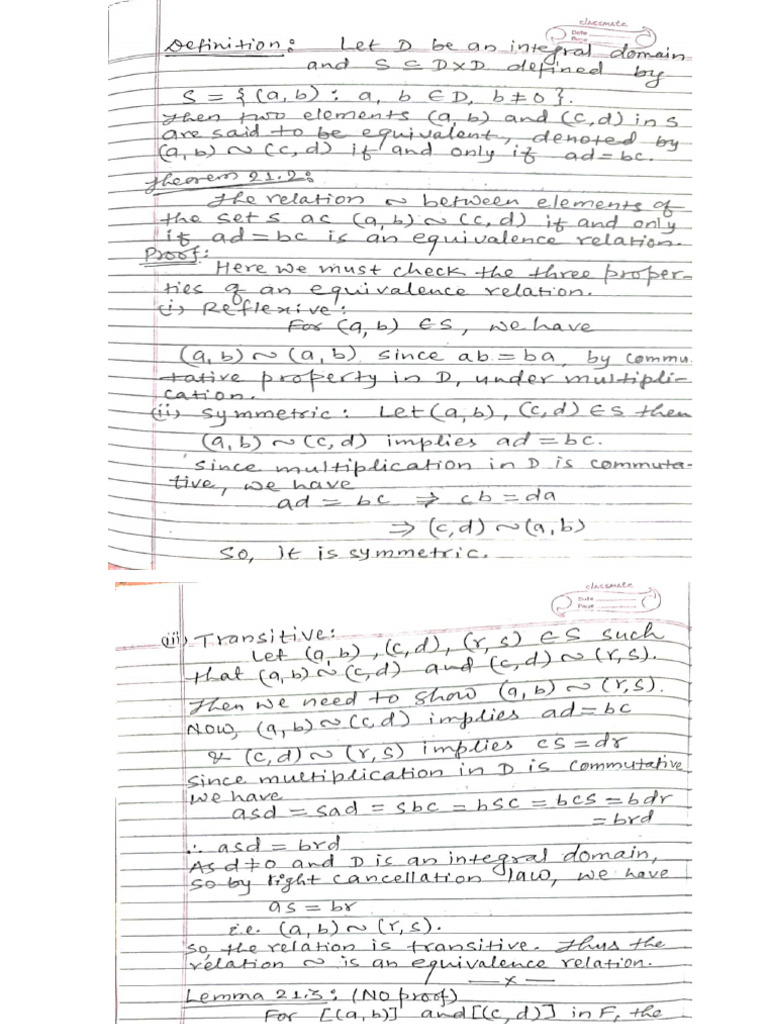 classmate
Date
Page
Definition: Let D be an integral domain
and S ⊆ D×D defined by
S = {(a, b) : a, b ∈ D, b ≠ 0}.
Then two elements (a, b) and (c, d) in S
are said to be equivalent, denoted by
(a, b) ~ (c, d) if and only if ad = bc.
Theorem 21.2:
The relation ~ between elements of
the set S as (a, b) ~ (c, d) if and only
if ad = bc is an equivalence relation.
Proof:
Here we must check the three proper-
ties of an equivalence relation.
(i) Reflexive:
For (a, b) ∈ S, we have
(a, b) ~ (a, b) since ab = ba, by commu
tative property in D, under multipli-
cation.
(ii) Symmetric: Let (a, b), (c, d) ∈ S then
(a, b) ~ (c, d) implies ad = bc.
since multiplication in D is commuta-
tive, we have
ad = bc ⇒ cb = da
⇒ (c, d) ~ (a, b)
So, It is symmetric.
classmate
Date
Page
(iii) Transitive:
Let (a, b), (c, d), (r, s) ∈ S such
that (a, b) ~ (c, d) and (c, d) ~ (r, s).
Then we need to show (a, b) ~ (r, s).
Now, (a, b) ~ (c, d) implies ad = bc
& (c, d) ~ (r, s) implies cs = dr
Since multiplication in D is commutative
we have
asd = sad = sbc = bsc = bcs = bdr
= brd
∴ asd = brd
As d ≠ 0 and D is an integral domain,
so by right cancellation law, we have
as = br
i.e. (a, b) ~ (r, s).
So, the relation is transitive. Thus the
relation ~ is an equivalence relation.
—x—
Lemma 21.3: (No proof)
For [(a, b)] and [(c, d)] in F, the